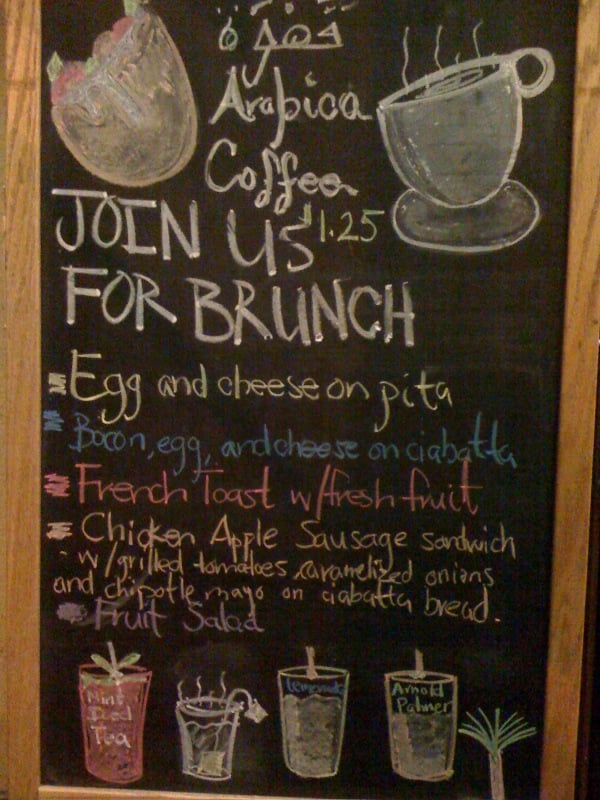 Arabica
Coffee
JOIN US $1.25
FOR BRUNCH
Egg and cheese on pita
Bacon, egg, and cheese on ciabatta
French Toast w/fresh fruit
Chicken Apple Sausage sandwich
- w/grilled tomatoes, caramelized onions
and chipotle mayo on ciabatta bread.
Fruit Salad
Mint
Iced
Tea
lemonade
Arnold
Palmer